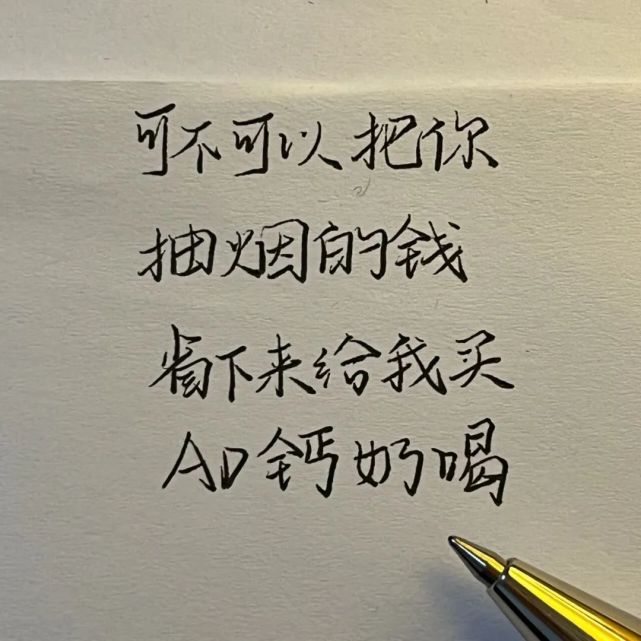 可不可以把你
抽烟的钱
省下来给我买
AD钙奶喝